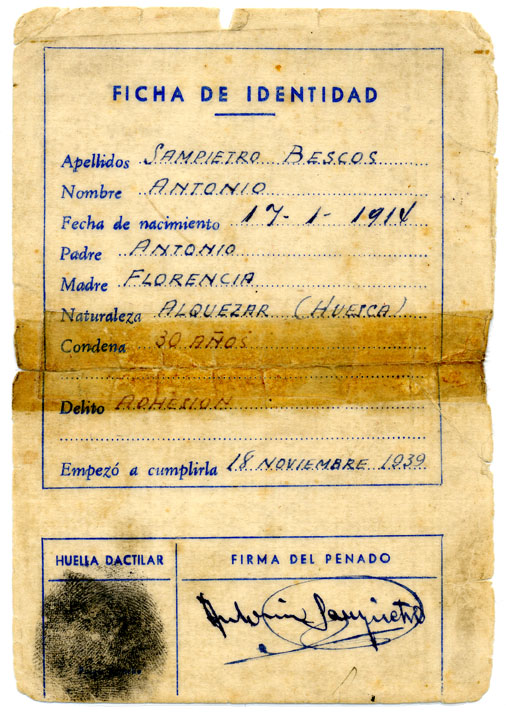 FICHA DE IDENTIDAD
Apellidos SAMPIETRO BESCOS
Nombre ANTONIO
Fecha de nacimiento 17-1-1914
Padre ANTONIO
Madre FLORENCIA
Naturaleza ALQUEZAR (HUESCA)
Condena 30 AÑOS
Delito ADHESION
Empezó a cumplirla 18 NOVIEMBRE 1939
HUELLA DACTILAR
FIRMA DEL PENADO
Antonio Sampietro